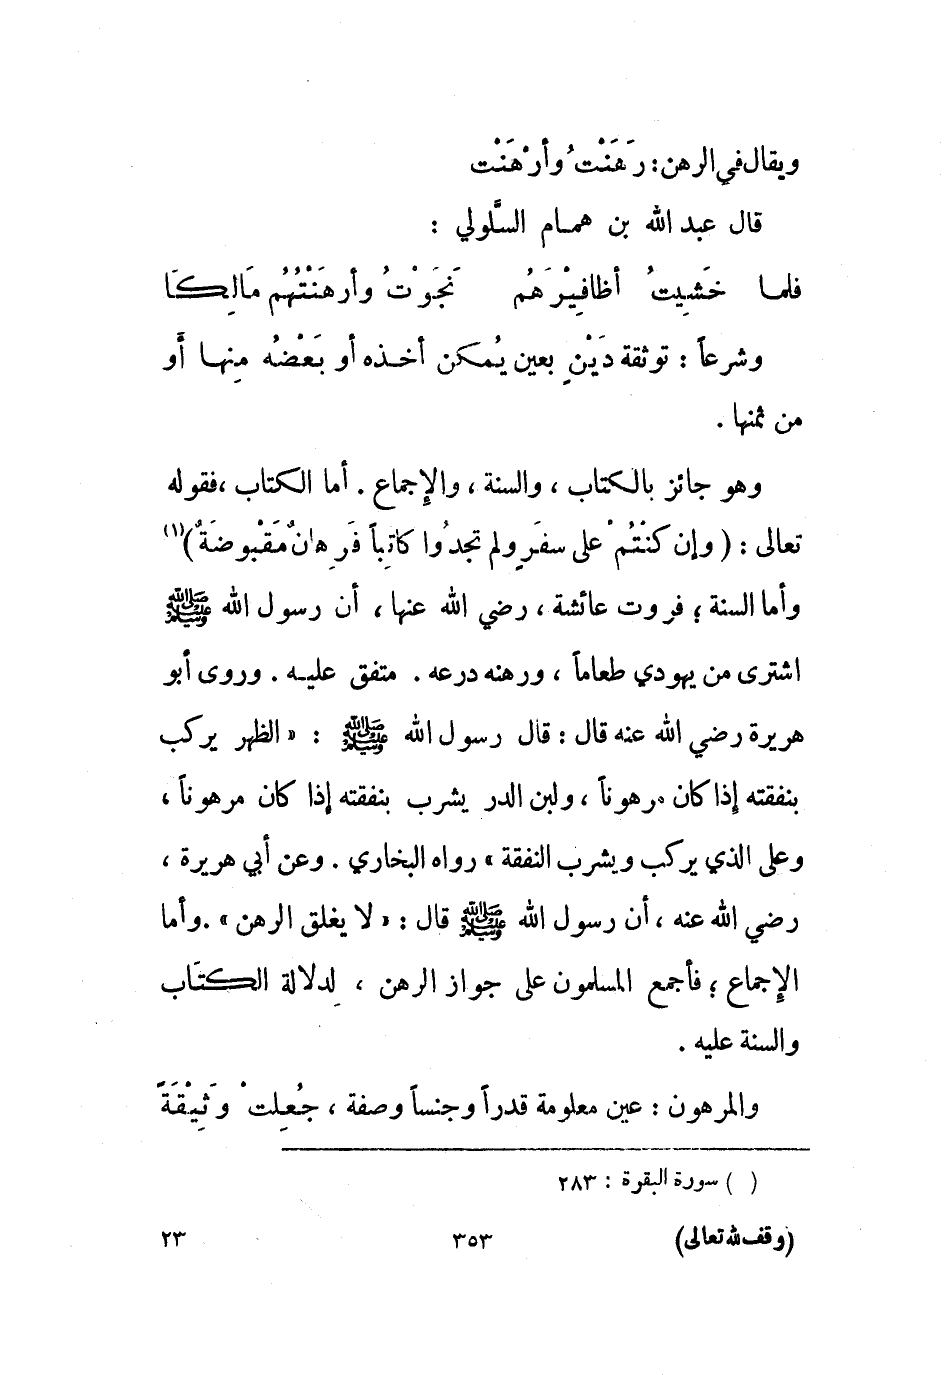 ويقال في الرهن : رَهَنْتُ وأرْهَنْت
قال عبد الله بن همام السَّلولي :
فلما خَشيتُ أظافِيْرَهُم نَجَوْتُ وأرهَنْتُهُم مَالِكَا
وشرعاً : توثقة دَيْنٍ بعين يُمكن أخذه أو بَعْضُه مِنها أَو
من ثمنها .
وهو جائز بالكتاب ، والسنة ، والإجماع . أما الكتاب ، فقوله
تعالى : ( وإن كنْتُمْ على سفَرٍ ولم تجدُوا كاتِباً فَرِهانٌ مَقْبوضَةٌ )(١)
وأما السنة ؛ فروت عائشة ، رضي الله عنها ، أن رسول الله ﷺ
اشترى من يهودي طعاماً ، ورهنه درعه . متفق عليه . وروى أبو
هريرة رضي الله عنه قال : قال رسول الله ﷺ : « الظهر يركب
بنفقته إذا كان مرهوناً ، ولبن الدر يشرب بنفقته إذا كان مرهوناً ،
وعلى الذي يركب ويشرب النفقة » رواه البخاري . وعن أبي هريرة ،
رضي الله عنه ، أن رسول الله ﷺ قال : « لا يغلق الرهن » . وأما
الإجماع ؛ فأجمع المسلمون على جواز الرهن ، لدلالة الكتَاب
والسنة عليه .
والمرهون : عين معلومة قدراً وجنساً وصفة ، جُعِلتْ وَثِيْقَةً
( ) سورة البقرة : ٢٨٣
(وقف لله تعالى) ٣٥٣ ٢٣